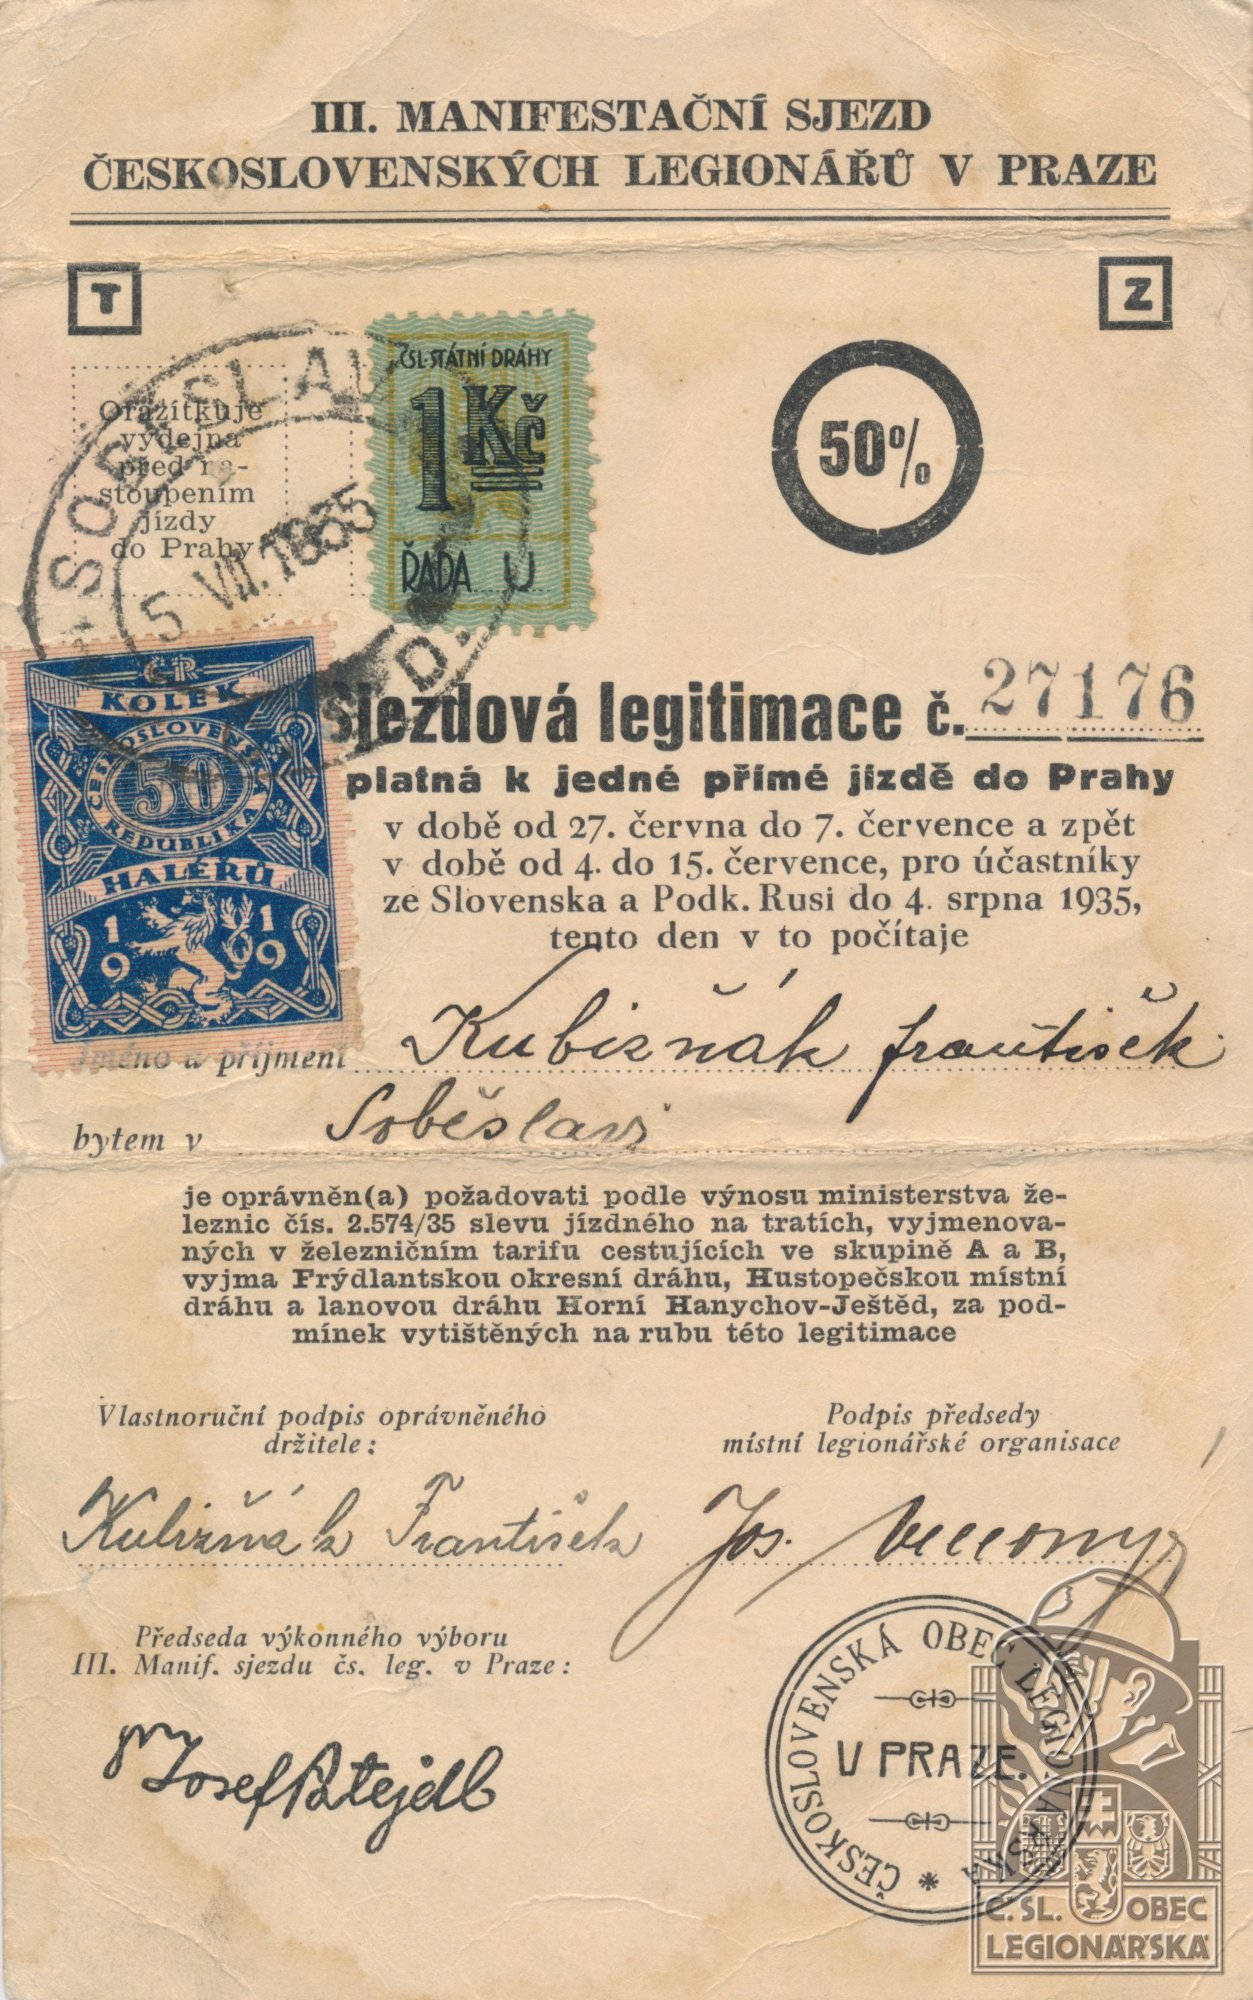 III. MANIFESTAČNÍ SJEZD
ČESKOSLOVENSKÝCH LEGIONÁŘŮ V PRAZE
T
Z
Orazítkuje
výdejna
před na-
stoupením
jízdy
do Prahy
SOBĚSLAV
5 VII. 1835
ČSL·STÁTNÍ DRÁHY
1 Kč
ŘADA U
50%
ČR
KOLEK
ČESKOSLOVENSKÁ
50
REPUBLIKA
HALÉŘŮ
1919
Sjezdová legitimace č. 27176
platná k jedné přímé jízdě do Prahy
v době od 27. června do 7. července a zpět
v době od 4. do 15. července, pro účastníky
ze Slovenska a Podk. Rusi do 4. srpna 1935,
tento den v to počítaje
Jméno a příjmení Kubizňák František
bytem v Soběslavi
je oprávněn(a) požadovati podle výnosu ministerstva že-
leznic čís. 2.574/35 slevu jízdného na tratích, vyjmenova-
ných v železničním tarifu cestujících ve skupině A a B,
vyjma Frýdlantskou okresní dráhu, Hustopečskou místní
dráhu a lanovou dráhu Horní Hanychov-Ještěd, za pod-
mínek vytištěných na rubu této legitimace
Vlastnoruční podpis oprávněného
držitele:
Podpis předsedy
místní legionářské organisace
Kubizňák František
Jos.
Předseda výkonného výboru
III. Manif. sjezdu čs. leg. v Praze:
Josef Patejdl
ČESKOSLOVENSKÁ OBEC LEGIONÁŘSKÁ
V PRAZE.
Č. SL. OBEC
LEGIONÁŘSKÁ